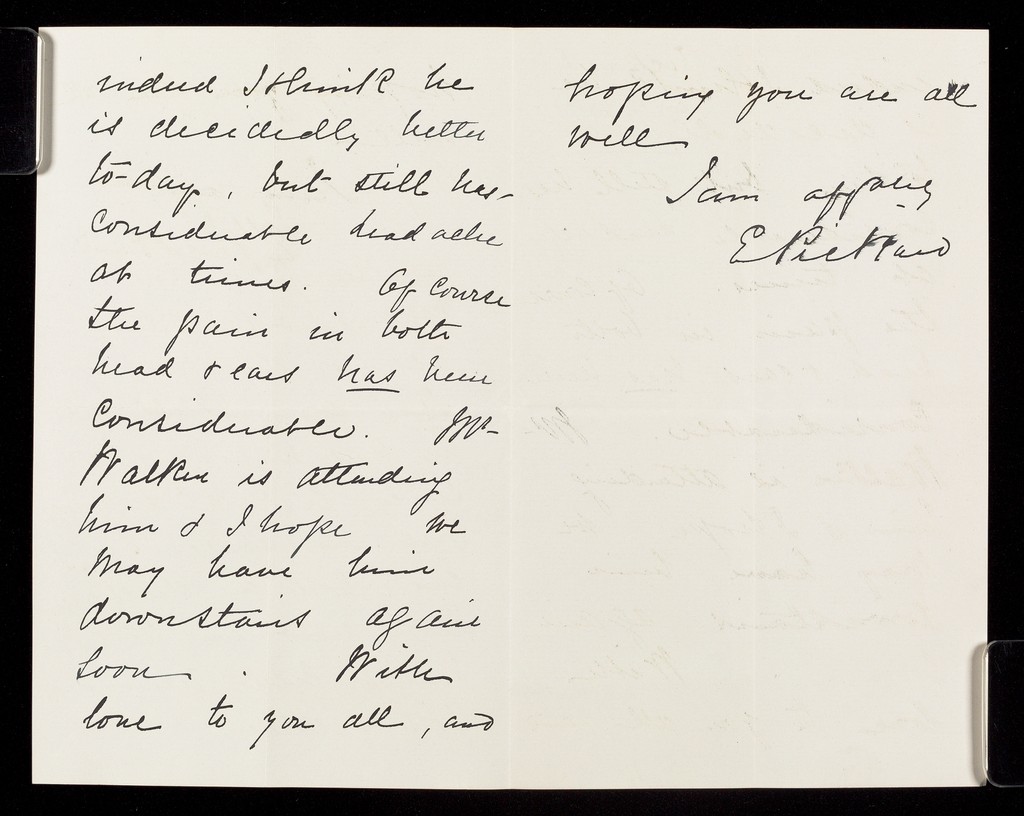 indeed I think he
is decidedly better
to-day, but still has
considerable headache
at times. Of course
the pain in both
head & ears has been
considerable. Mr
Walker is attending
him & I hope we
may have him
downstairs again
soon. With
love to you all, and
hoping you are all
well
I am affately
E Pickard